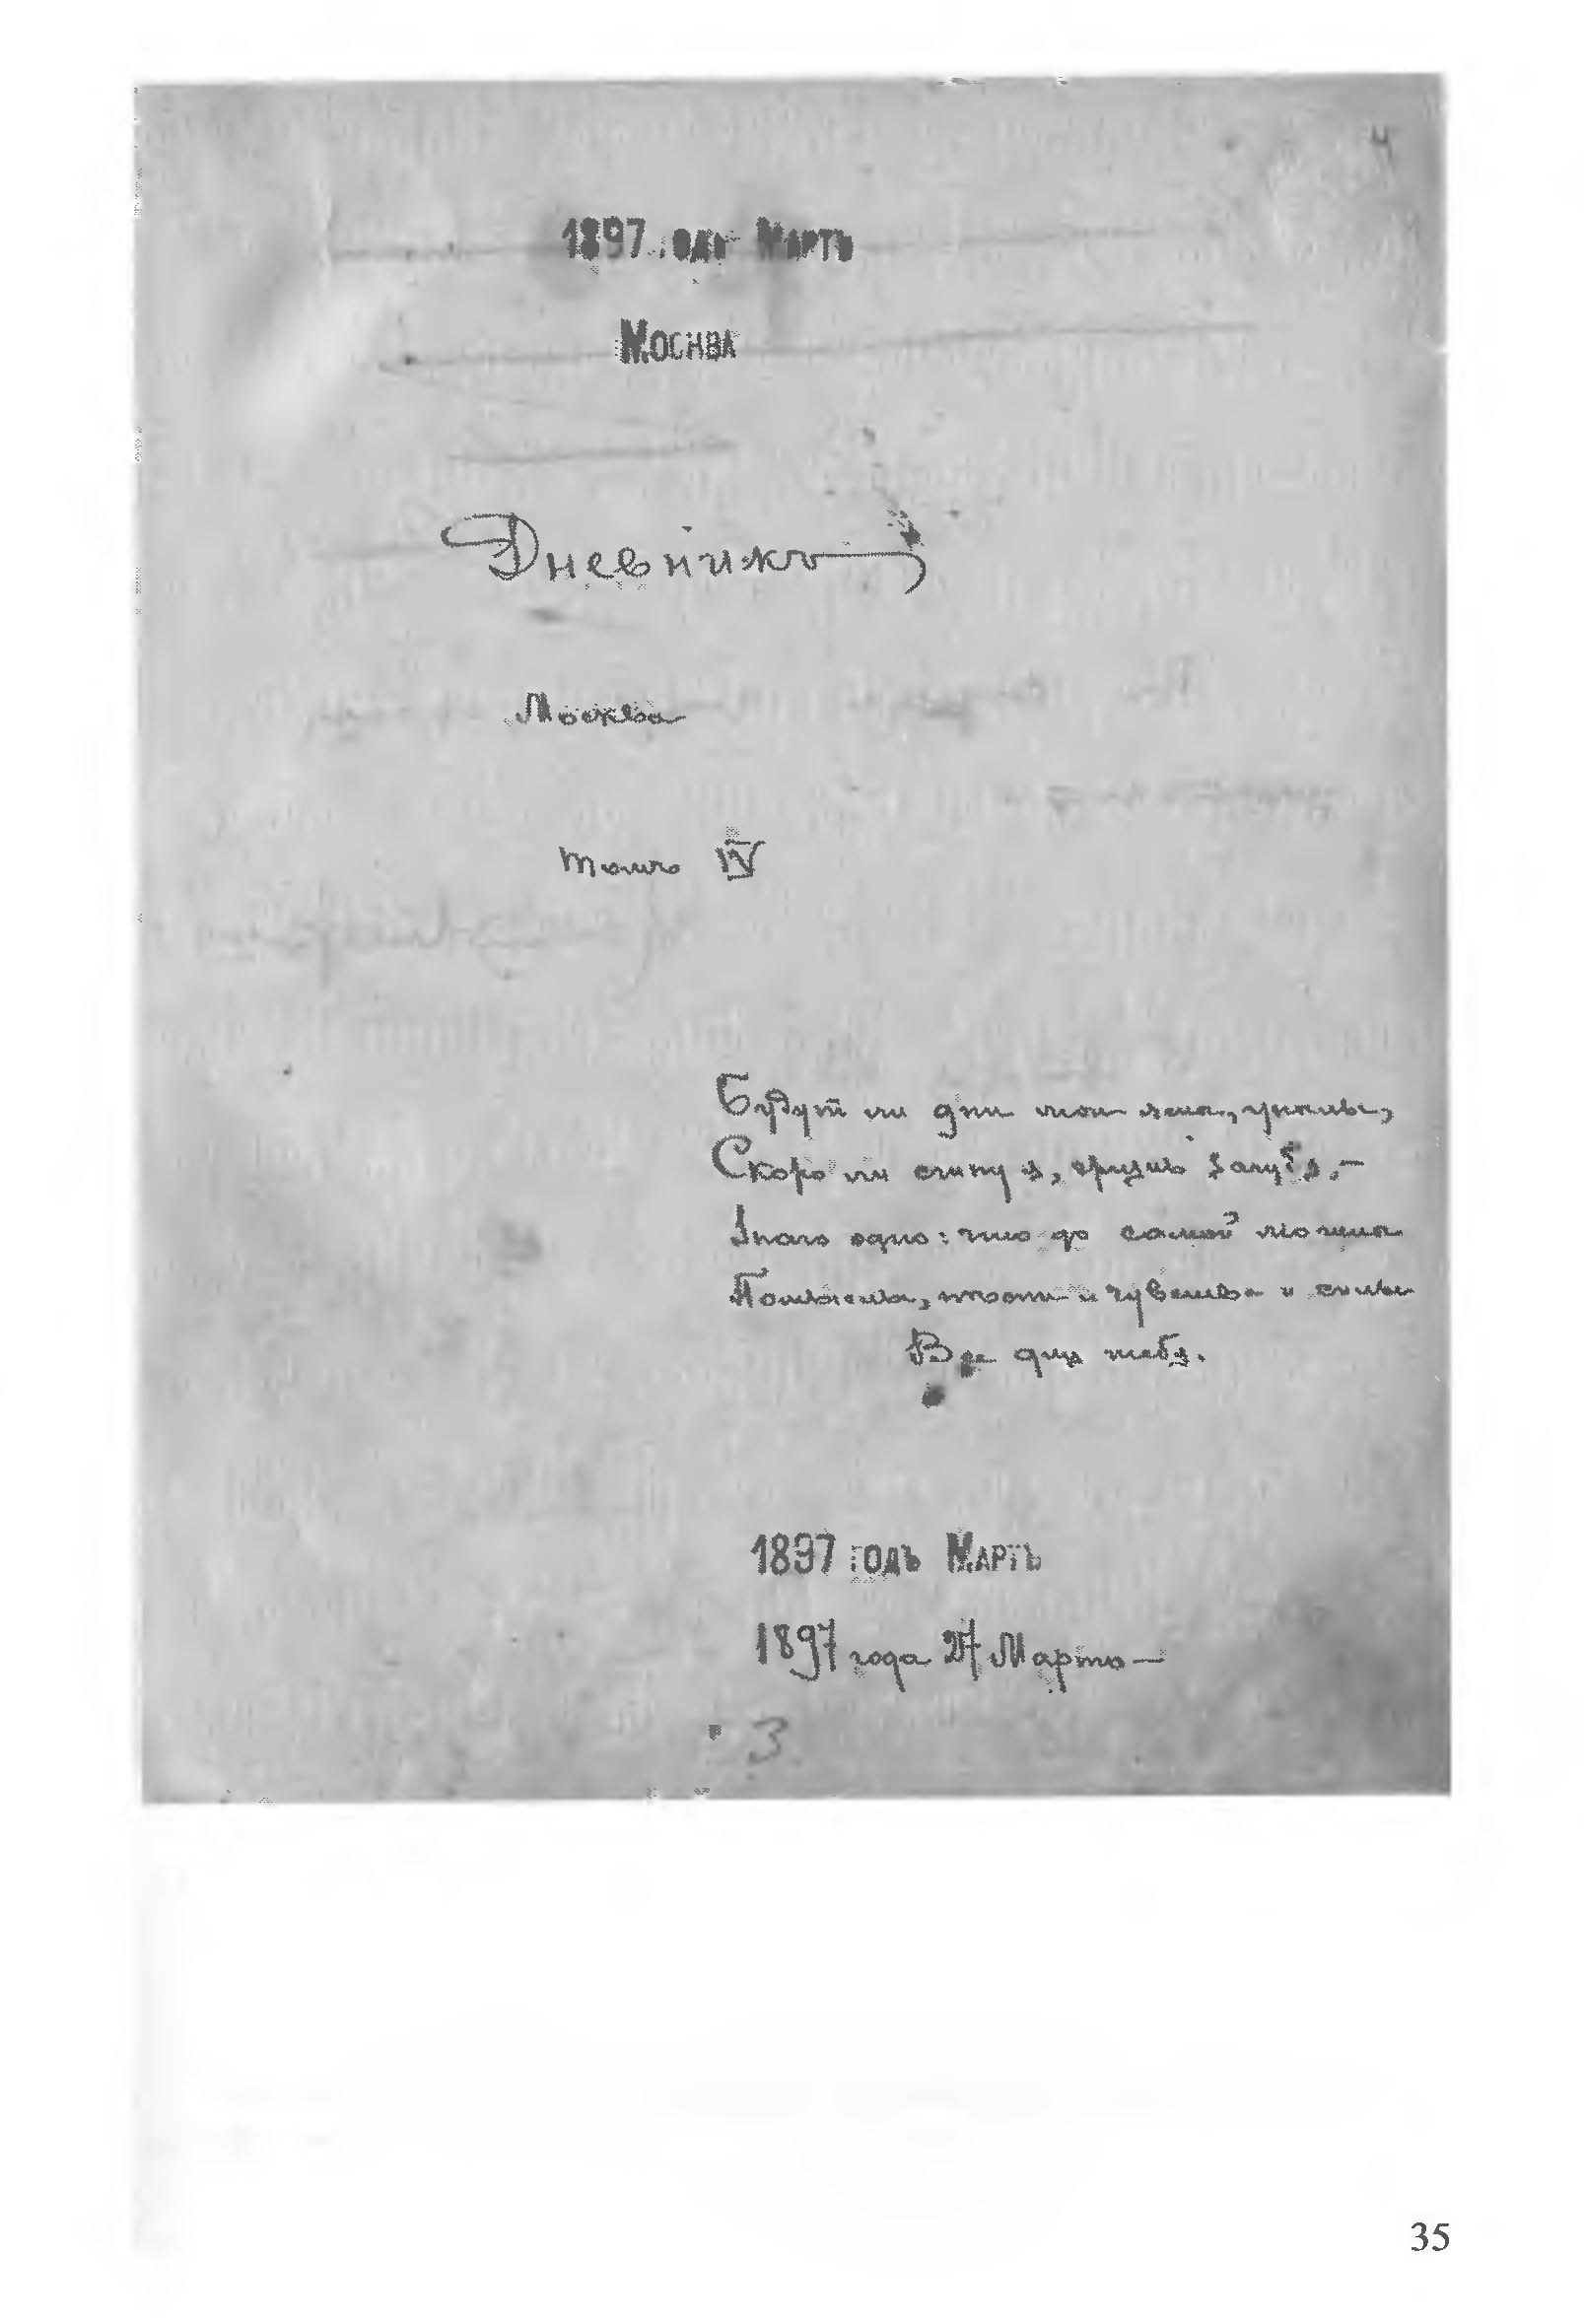 4
1897 годъ Мартъ
Москва
Дневникъ
Москва
томъ IV
Будут ли дни мои ясны, унылы,
Скоро ли сгину я, жизнь загубя,—
Знаю одно: что до самой могилы
Помыслы, песни и чувства и силы
Все для тебя.
1897 годъ Мартъ
1897 года 27 Марта —
3
35